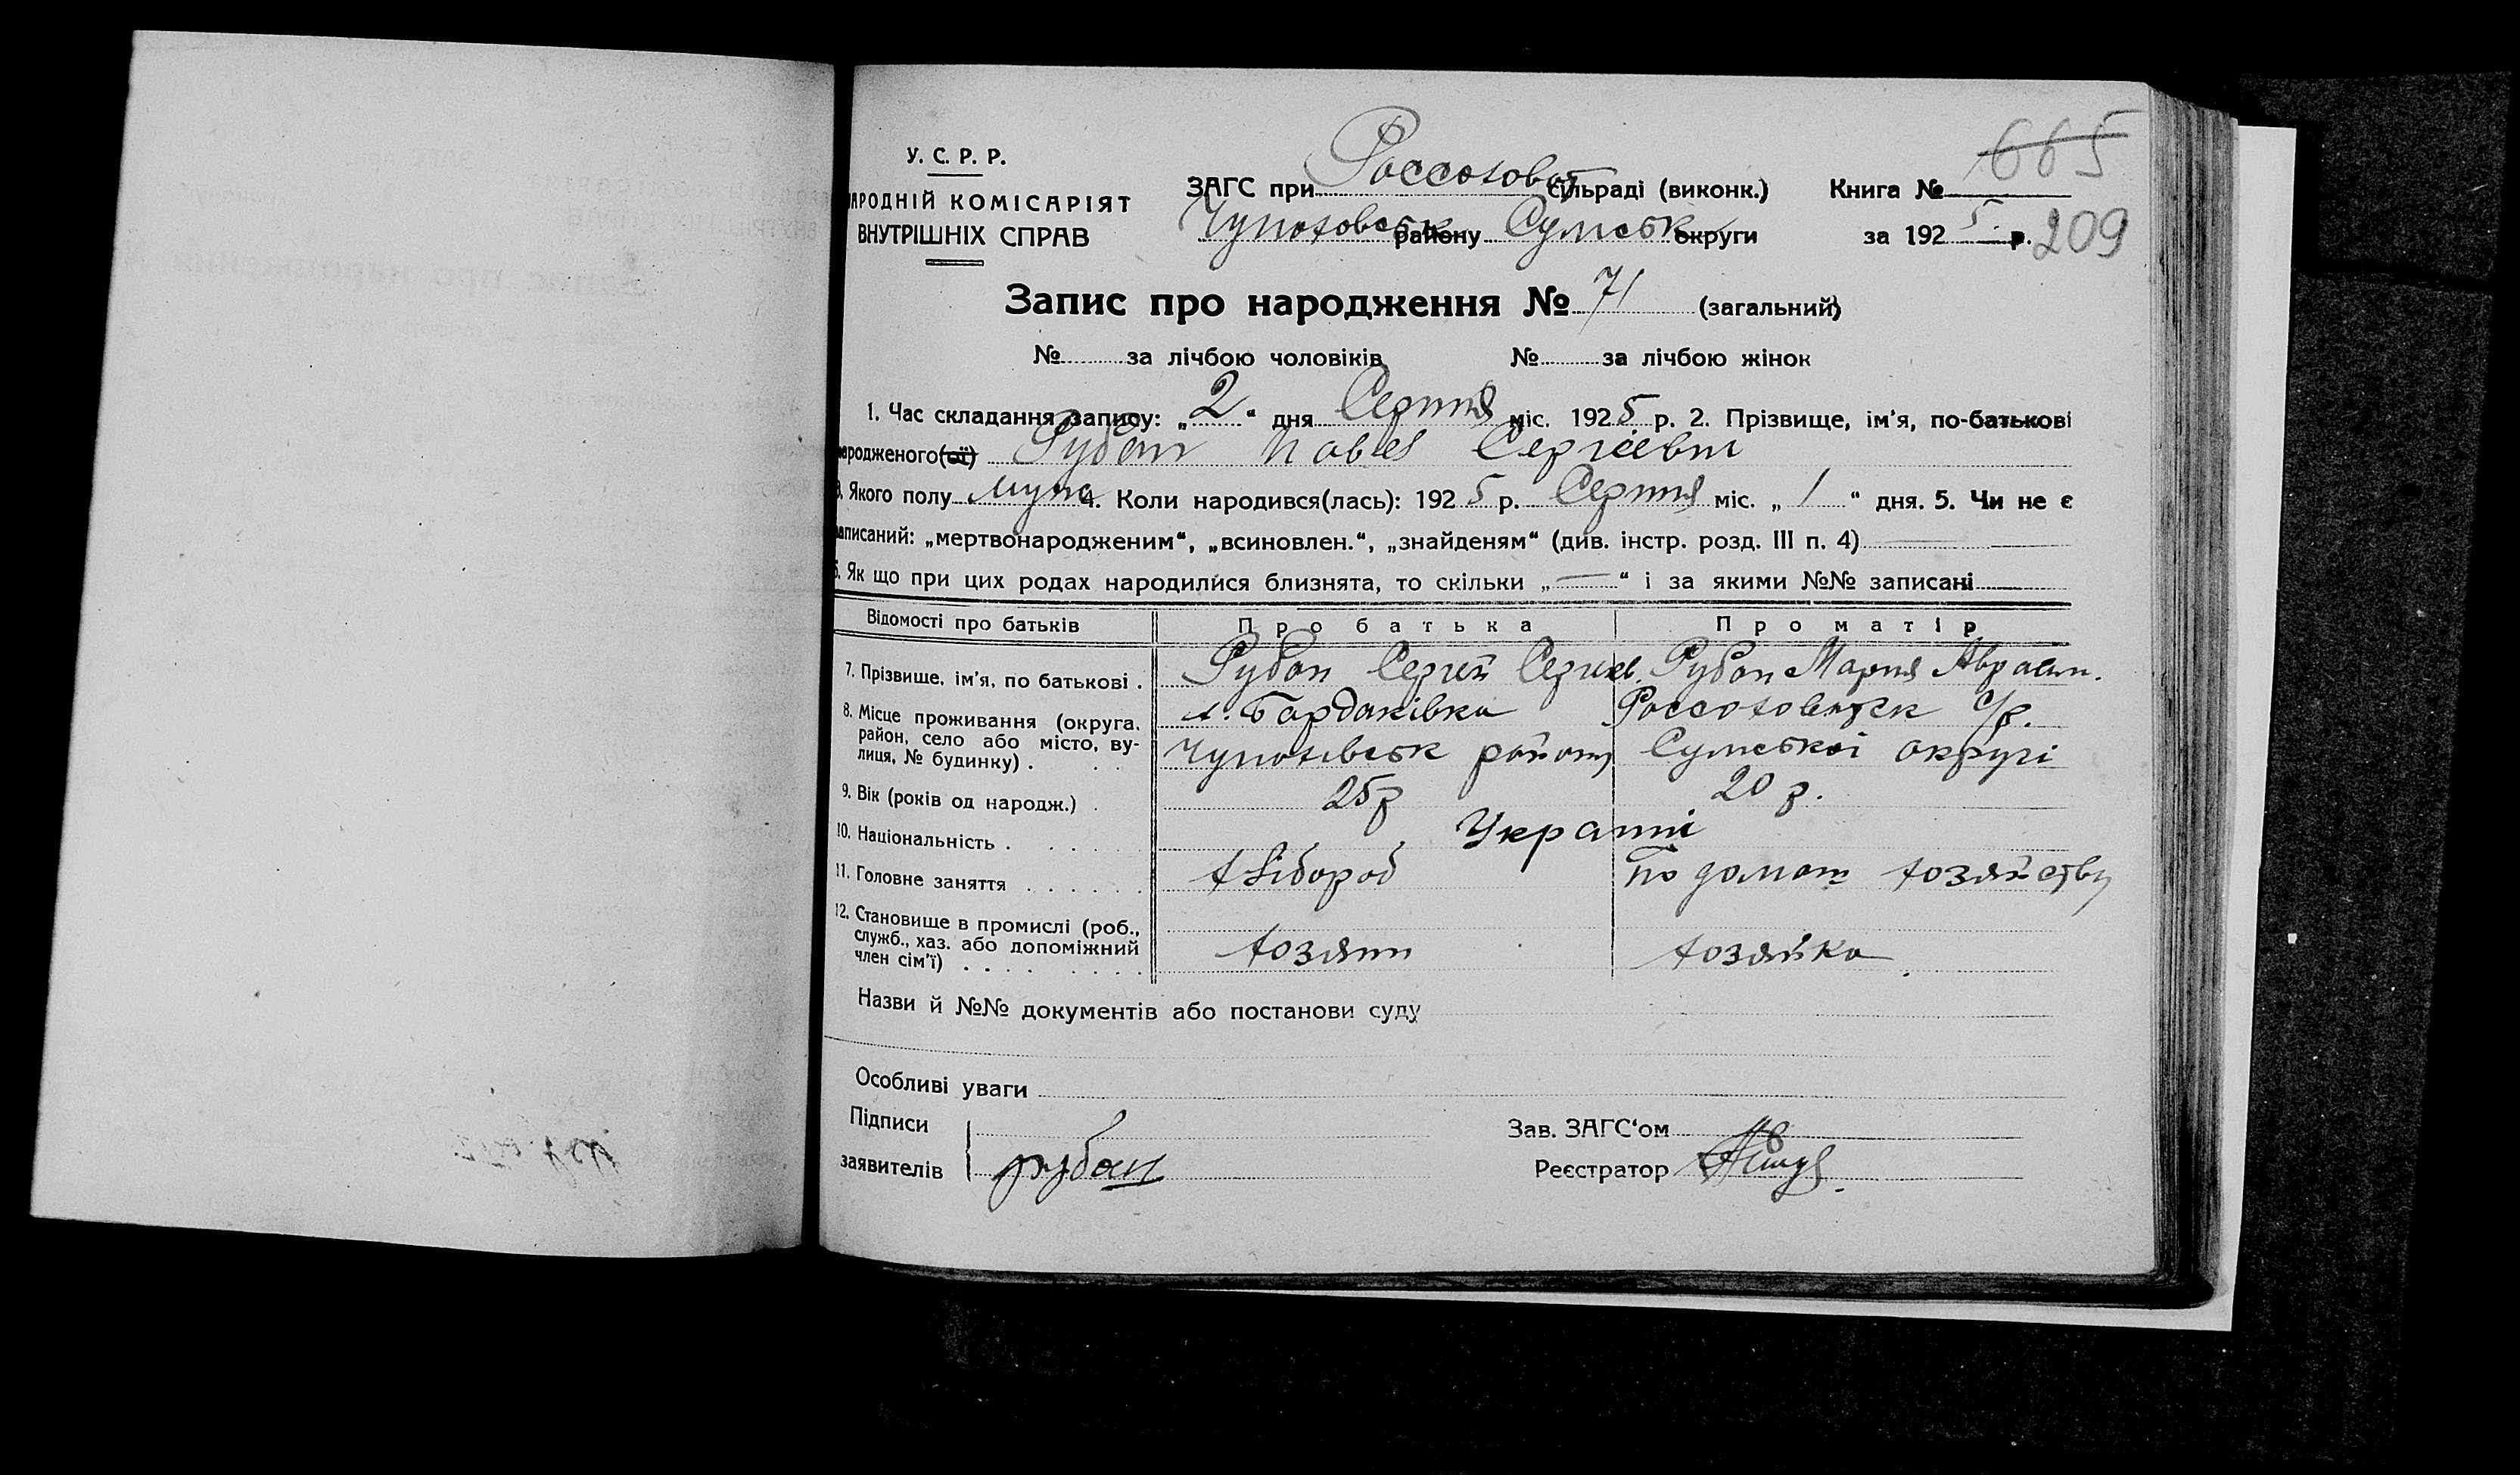 665
У. С. Р. Р.
АРОДНІЙ КОМІСАРІЯТ
ВНУТРІШНІХ СПРАВ
ЗАГС при Россоховат сільраді (виконк.) Книга №
Чупоховськ району Сумськ округи за 1925 р. 209
Запис про народження № 71 (загальний)
№ за лічбою чоловіків № за лічбою жінок
1. Час складання запису: „2“ дня Серпня міс. 1925 р. 2. Прізвище, ім'я, по-батькові
народженого(ої) Рубан Павел Сергієвич
3. Якого полу муж 4. Коли народився(лась): 1925 р. Серпня міс. „1“ дня. 5. Чи не є
записаний: „мертвонародженим“, „всиновлен.“, „знайденям“ (див. інстр. розд. III п. 4)
6. Як що при цих родах народилися близнята, то скільки „—“ і за якими №№ записані
Відомості про батьків Про батька Про матір
7. Прізвище, ім'я, по батькові . Рубан Сергій Сергиев. Рубан Мария Авраам.
8. Місце проживання (округа, х. Бардаківка Россоховатск с/р.
район, село або місто, ву-
лиця, № будинку) . Чупохівськ району Сумської округі
9. Вік (років од народж.) . 25 р 20 р.
10. Національність . Українці
11. Головне заняття хлібороб По домаш хозяйству
12. Становище в промислі (роб.,
служб., хаз. або допоміжний
член сім'ї) хозяин хозяйка
Назви й №№ документів або постанови суду
Особливі уваги
Підписи Зав. ЗАГС'ом
заявителів рубан Реєстратор